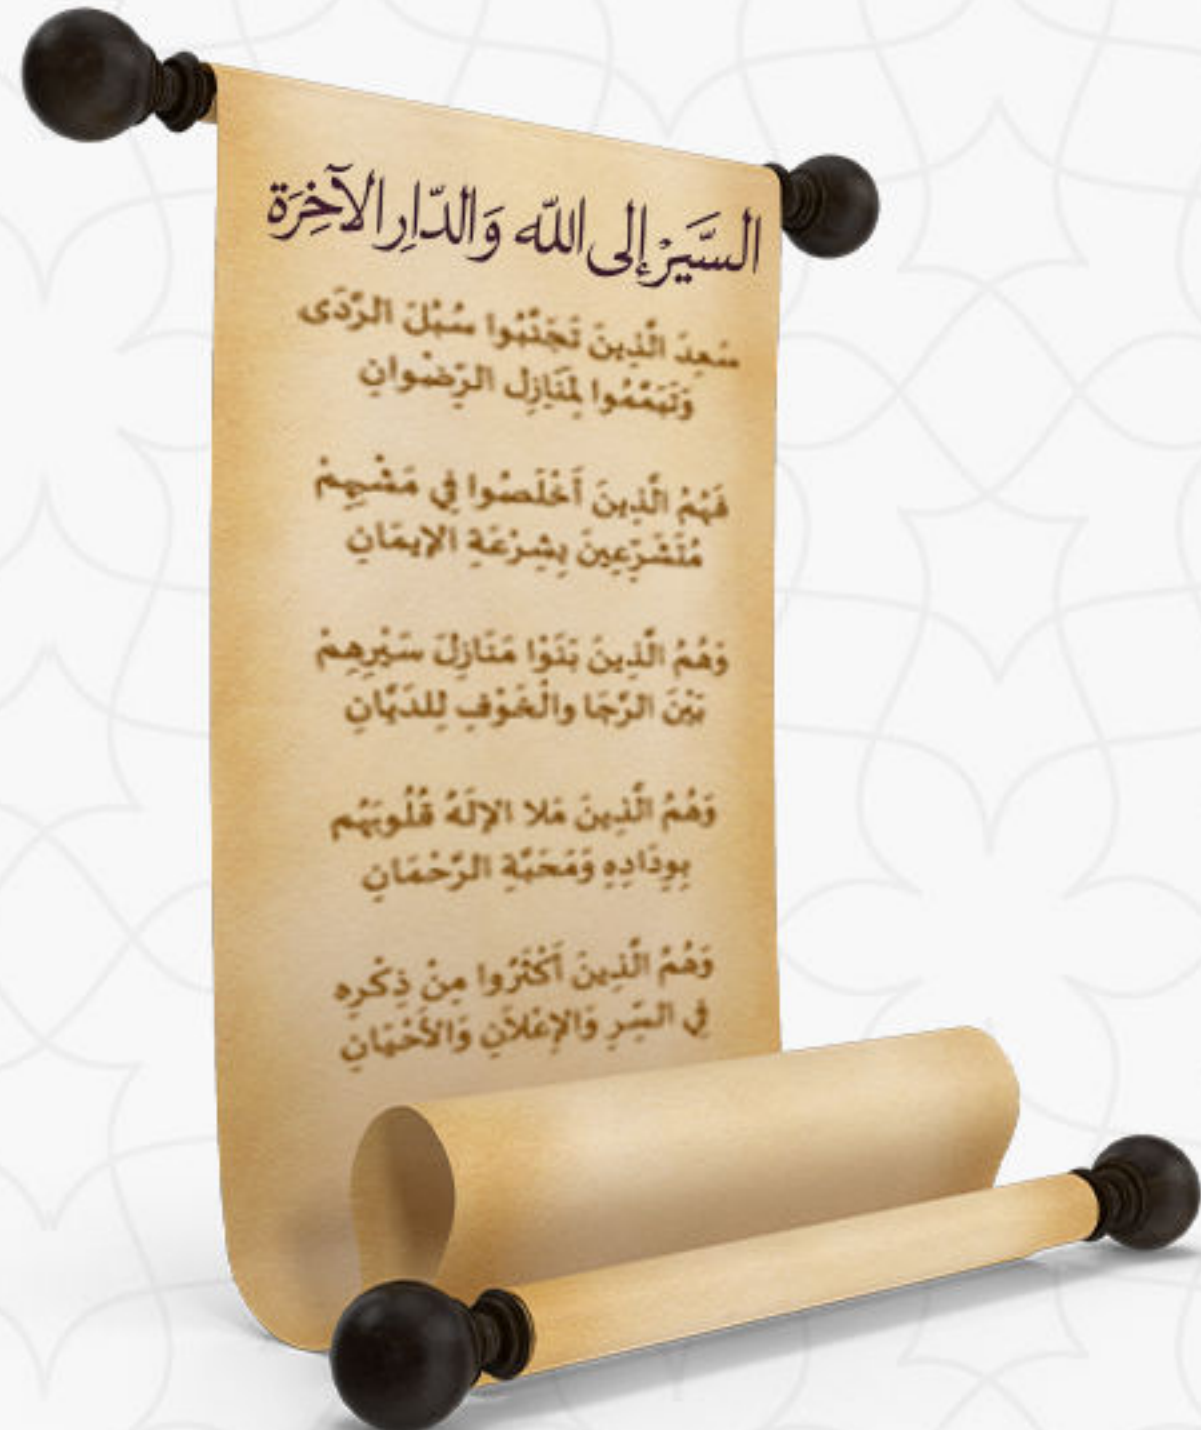 السَّيْرُ إِلى اللّه وَالدّارِ الآخِرَة
سَعِدَ الَّذِينَ تَجَنَّبُوا سُبُلَ الرَّدَى
وَتَيَمَّمُوا لِمَنَازِلِ الرِّضْوانِ
فَهُمُ الَّذِينَ أَخْلَصُوا فِي مَشْيِهِمْ
مُتَشَرِّعِينَ بِشِرْعَةِ الإِيمَانِ
وَهُمُ الَّذِينَ بَنَوْا مَنَازِلَ سَيْرِهِمْ
بَيْنَ الرَّجَا والْخَوْفِ لِلدَيَّانِ
وَهُمُ الَّذِينَ مَلا الإِلَهُ قُلُوبَهُم
بِوِدَادِهِ وَمَحَبَّةِ الرَّحْمَانِ
وَهُمُ الَّذِينَ أَكْثَرُوا مِنْ ذِكْرِهِ
فِي السِّرِ وَالإِعْلاَنِ وَالأَحْيَانِ